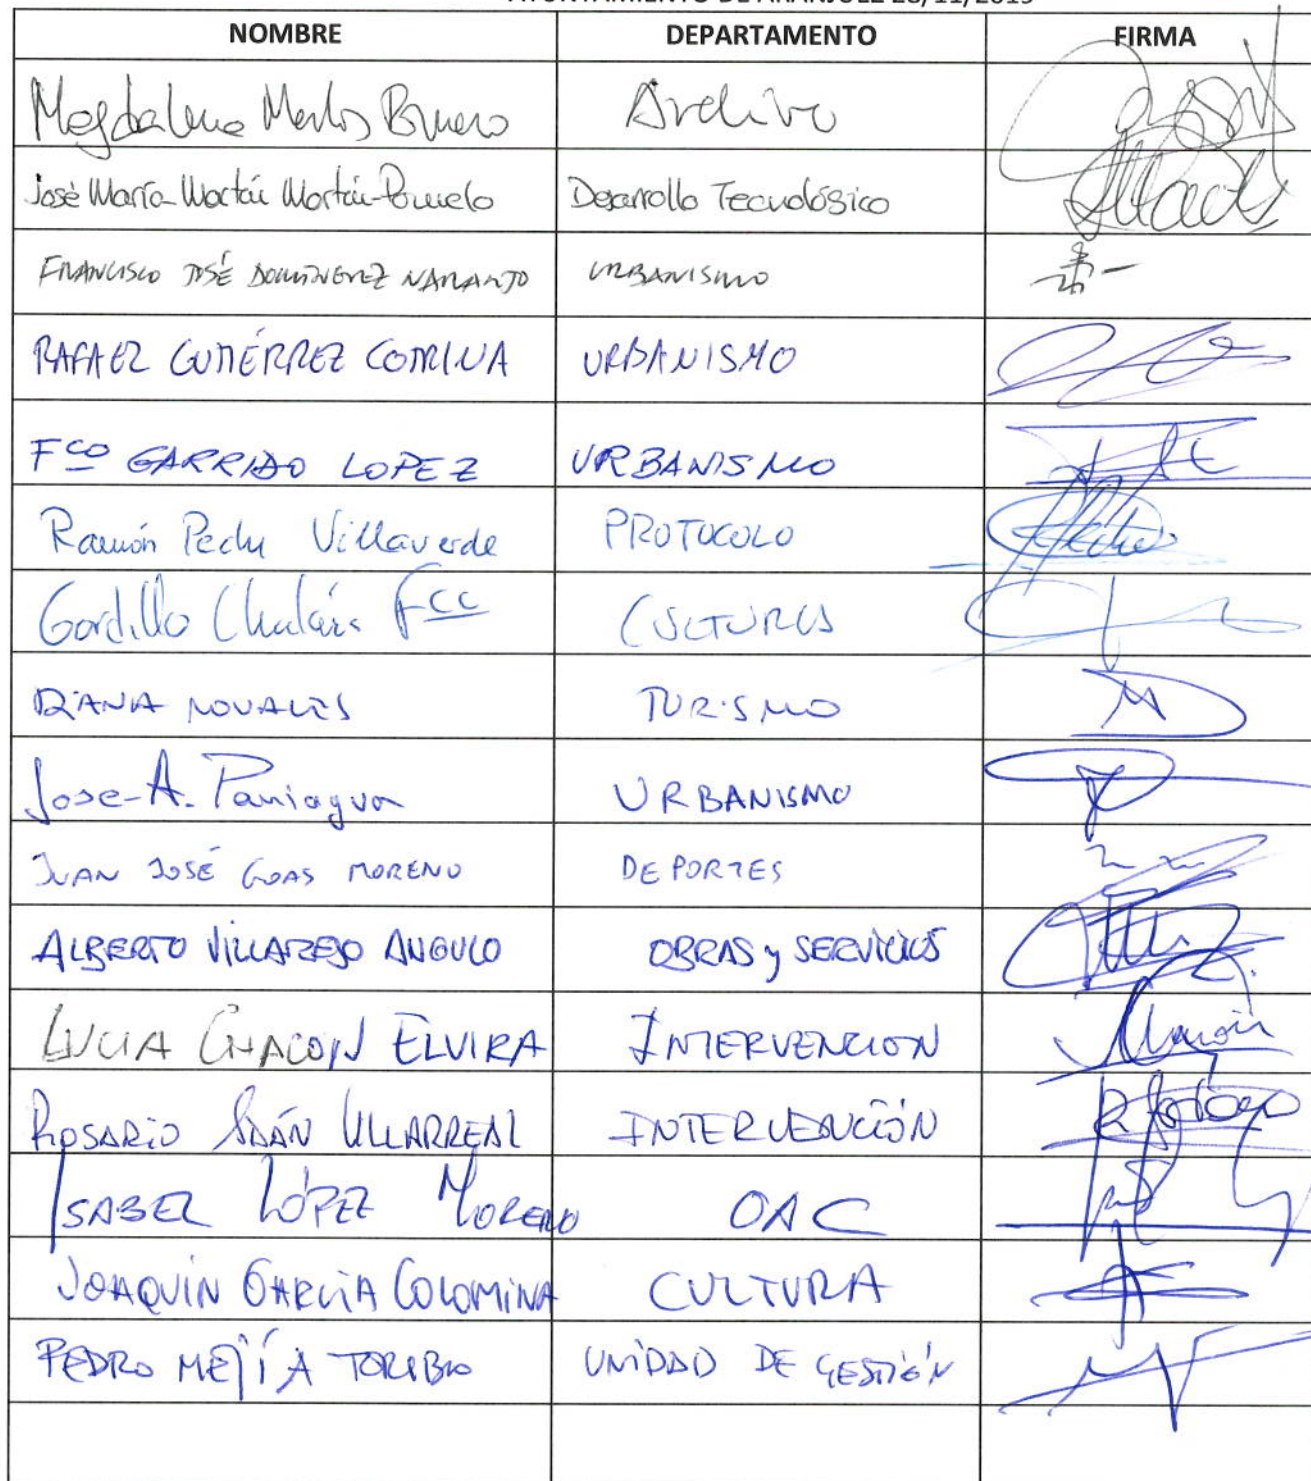 AYUNTAMIENTO DE ARANJUEZ 28/11/2019
NOMBRE DEPARTAMENTO FIRMA
Magdalena Merlos Romero Archivo
José María Martín Martín-Pozuelo Desarrollo Tecnológico
FRANCISCO JOSÉ DOMÍNGUEZ NARANJO URBANISMO
RAFAEL GUTIÉRREZ CORTINA URBANISMO
Fco GARRIDO LOPEZ URBANISMO
Ramón Peche Villaverde PROTOCOLO
Gordillo Fco
DIANA NOVALES TURISMO
Jose-A. Paniagua URBANISMO
JUAN JOSÉ GOAS MORENO DEPORTES
ALBERTO VILLAREJO ANGULO OBRAS y SERVICIOS
LUCIA CHACON ELVIRA INTERVENCION
ROSARIO ADÁN VILLARREAL INTERVENCIÓN
ISABEL LÓPEZ MORENO OAC
JOAQUÍN GARCÍA COLOMINA CULTURA
PEDRO MEJÍA TORIBIO UNIDAD DE GESTIÓN